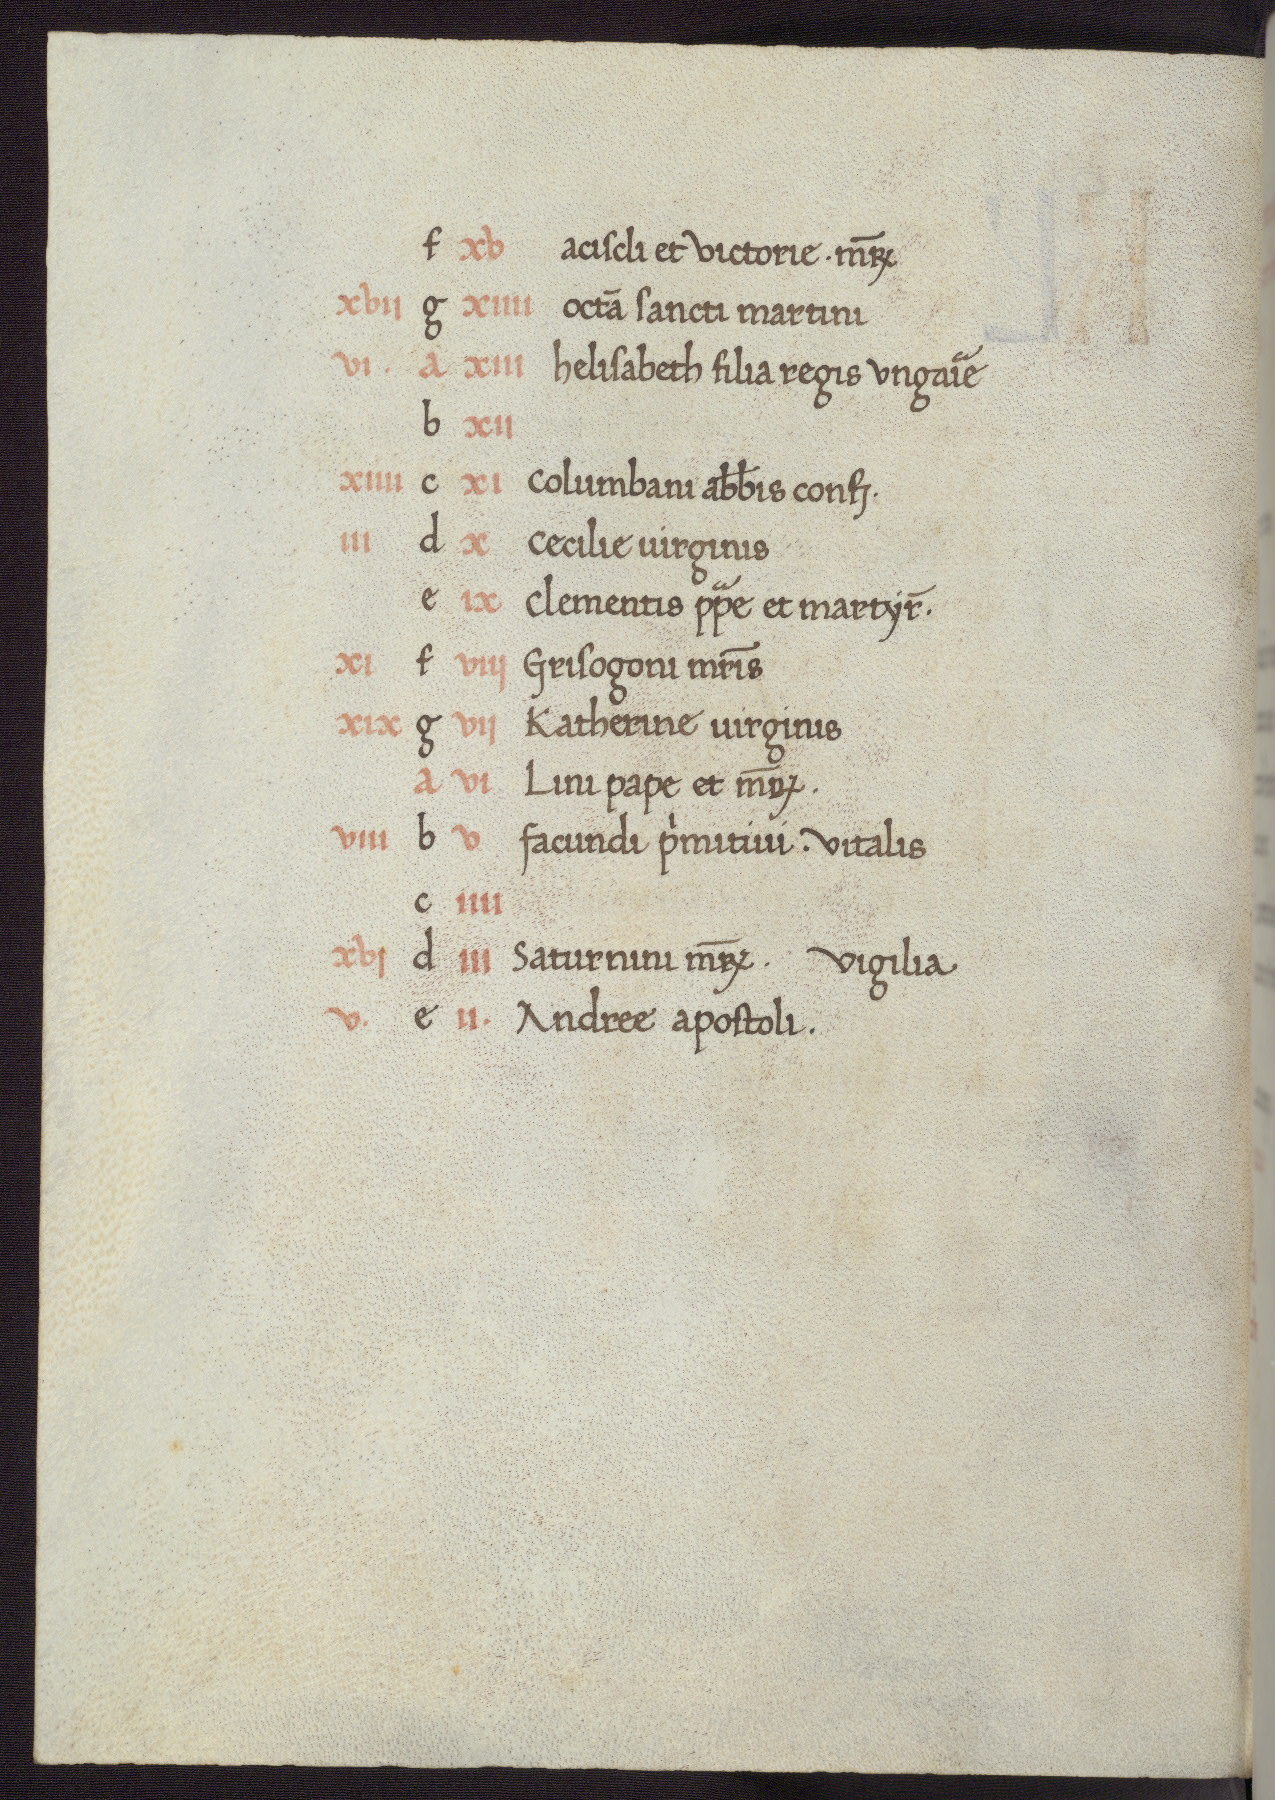 f xv aciscli et victorie · mr̄ꝝ
xvii g xiiii octā sancti martini
vi · a xiii helisabeth filia regis vngaīe
b xii
xiiii c xi columbani abb̄is conf.
iii d x cecilie uirginis
e ix clementis ppe et martyr̄ ·
xi f viii Grisogoni mr̄is
xix g vii Katherine uirginis
a vi Lini pape et mr̄ꝝ ·
viii b v facundi p̍mitiui · vitalis
c iiii
xvi d iii Saturnini mr̄ꝝ · vigilia
v · e ii · Andree apostoli ·